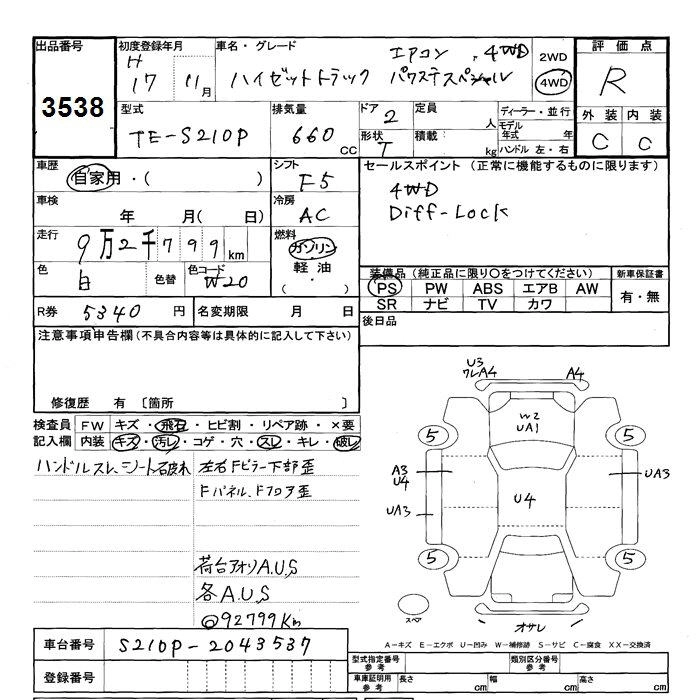 出品番号 初度登録年月 車名・グレード エアコン 4WD 2WD 評価点
3538 H 17 11月 ハイゼットトラック パワステスペシャル 4WD R
型式 排気量 ドア 2 定員 人 ディーラー・並行 外装 内装
TE-S210P 660 CC 形状 T 積載 kg モデル年式 年 C C
ハンドル 左・右
車歴 シフト セールスポイント (正常に機能するものに限ります)
自家用・( ) F5 4WD
車検 冷房 Diff-Lock
年 月( 日) AC
走行 燃料
9万2千799km ガソリン
色 色替 色コード 軽油 装備品 (純正品に限り○をつけてください) 新車保証書
白 W20 ( ・ ) PS PW ABS エアB AW 有・無
SR ナビ TV カワ
R券 5340 円 名変期限 月 日 後日品
注意事項申告欄(不具合内容等は具体的に記入して下さい)
修復歴 有 〔箇所 〕
検査員 FW キズ・飛石・ヒビ割・リペア跡・×要
記入欄 内装 キズ・汚レ・コゲ・穴・スレ・キレ・破レ
ハンドルスレ、シート破れ 左右Fピラー下部歪
Fパネル、Fフロア歪
荷台アオリA.U.S
各A.U.S
@92799Km
U3
ワレA4 A4
W2
UA1
5 5
A3
U4 UA3
U4
UA3
5 5
スペア オサレ
A-キズ E-エクボ U-凹み W-補修跡 S-サビ C-腐食 XX-交換済
車台番号 S210P-2043537 型式指定番号 参考 類別区分番号 参考
登録番号 車庫証明用 参考 長さ cm 幅 cm 高さ cm